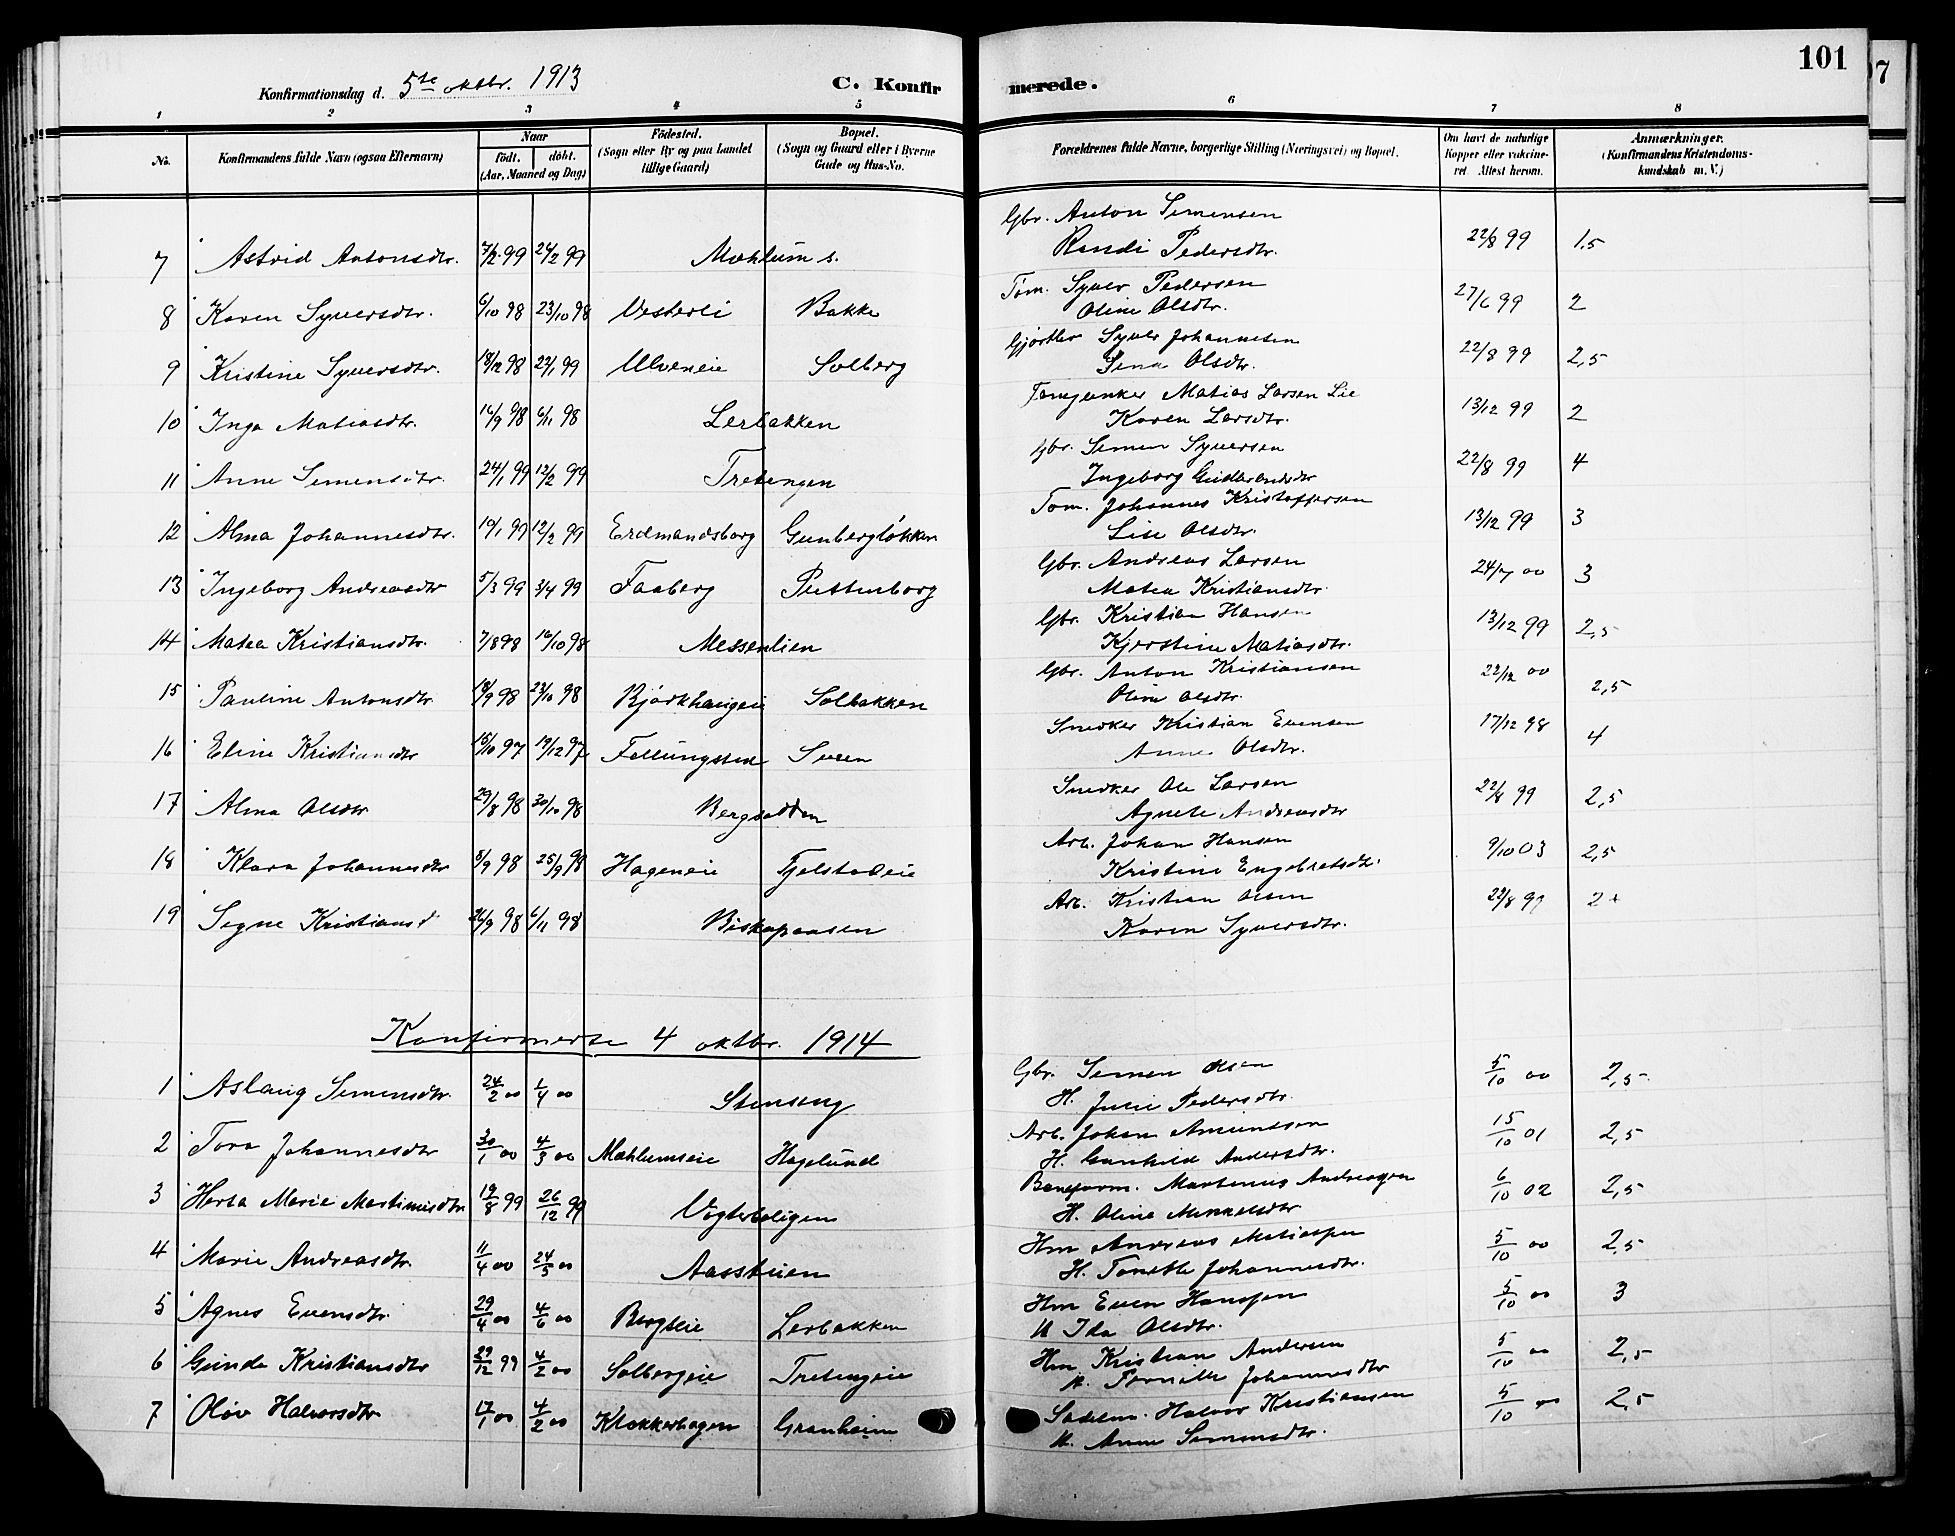 101
7
Konfirmationsdag d. 5te oktbr. 1913
C. Konfirmerede.
1 2 3 4 5 6 7 8
No. Konfirmandens fulde Navn (ogsaa Efternavn) Naar födt. döbt. (Aar, Maaned og Dag) Födested. (Sogn eller By og paa Landet tillige Gaard) Bopæl. (Sogn og Gaard eller i Byerne Gade og Hus-No. Forældrenes fulde Navne, borgerlige Stilling (Næringsvei) og Bopæl. Om havt de naturlige Kopper eller vakcineret. Attest herom. Anmærkninger. (Konfirmandens Kristendomskundskab m. V.)
7 Astrid Antonsdtr. 7/2 99 24/2 99 Mæhlum s. Gbr. Anton Simensen
Randi Pedersdtr. 22/8 99 1,5
8 Karen Syversdtr. 6/10 98 23/10 98 Vesterli Bakke Tøm. Syver Pedersen
Oline Olsdtr. 27/6 99 2
9 Kristine Syversdtr. 18/12 98 22/1 99 Ulveneie Solberg Gjørtler Syver Johannesen
Olsdtr. 22/8 99 2,5
10 Inga Matiasdtr. 16/9 98 6/11 98 Lerbakken Matias Larsen Lie
Karen Larsdtr. 13/12 99 2
11 Anne Simensdtr. 24/1 99 12/2 99 Tretengen Gbr. Simen Syversen
Ingeborg Gudbrandsdtr 22/8 99 4
12 Alma Johannesdtr. 19/1 99 12/2 99 Erdmandsborg Gunbergløkken Tøm. Johannes Kristoffersen
Lise Olsdtr. 13/12 99 3
13 Ingeborg Andreasdtr 5/3 99 3/4 99 Faaberg Puttenborg Gbr. Andreas Larsen
Matea Kristiansdtr. 24/7 00 3
14 Matea Kristiansdtr. 7/8 98 16/10 98 Messenlien Gbr. Kristian Hansen
Kjerstine Matiasdtr. 13/12 99 2,5
15 Pauline Antonsdtr. 18/9 98 23/10 98 Bjørkhaugeie Solbakken Gbr. Anton Kristiansen
Oline Olsdtr. 22/12 00 2,5
16 Eline Kristiansdtr 15/10 97 19/12 97 Sveen Snedker Kristian Evensen
Anne Olsdtr. 17/12 98 4
17 Alma Olsdtr 29/8 98 30/10 98 Snedker Ole Larsen
Agnete Andreasdtr 22/8 99 2,5
18 Klara Johannesdtr 5/9 98 25/9 98 Hageneie Fjelstadeie Arb. Johan Hansen
Kristine Engebretsdtr. 9/10 03 2,5
19 Signe Kristiansd 26/9 98 6/11 98 Biskopaasen Arb. Kristian Olsen
Karen Syversdtr. 22/8 99 2+
Konfirmerte 4 oktbr. 1914
1 Aslaug Simensdtr. 24/2 00 1/4 00 Stenseng Gbr. Simen Olsen
H. Julie Pedersdtr. 5/10 00 2,5
2 Tora Johannesdtr 30/1 00 4/3 00 Mæhlumseie Hagelund Arb. Johan Amundsen
H. Gunhild Andersdtr. 15/10 01 2,5
3 Herta Marie Martinusdtr 19/8 99 26/12 99 Vogterboligen Baneform. Martinus Andreasen
H. Oline Mikkelsdtr 6/10 02 2,5
4 Marie Andreasdtr. 11/4 00 24/5 00 Aasstuen Hm Andreas Matiassen
H. Tonette Johannesdtr. 5/10 00 2,5
5 Agnes Evensdtr. 29/4 00 4/6 00 Bergseie Lerbakken Hm Even Hanssen
H Ida Olsdtr. 5/10 00 3
6 Gunda Kristiansdtr 29/12 99 4/2 00 Solbergeie Tretengeie Hm Kristian Andersen
H. Pernille Johannesdtr 5/10 00 2,5
7 Olöv Halvorsdtr 17/1 00 4/2 00 Klokkerhagen Granheim Sadelm. Halvor Kristiansen
H. Anne Simensdtr. 5/10 00 2,5